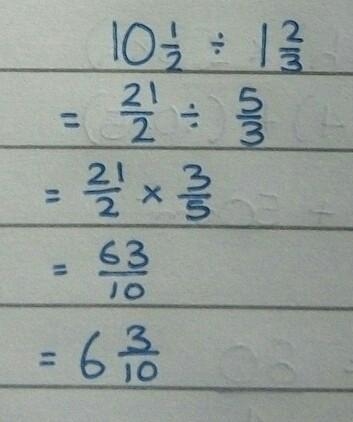 10 1/2 ÷ 1 2/3
= 21/2 ÷ 5/3
= 21/2 × 3/5
= 63/10
= 6 3/10